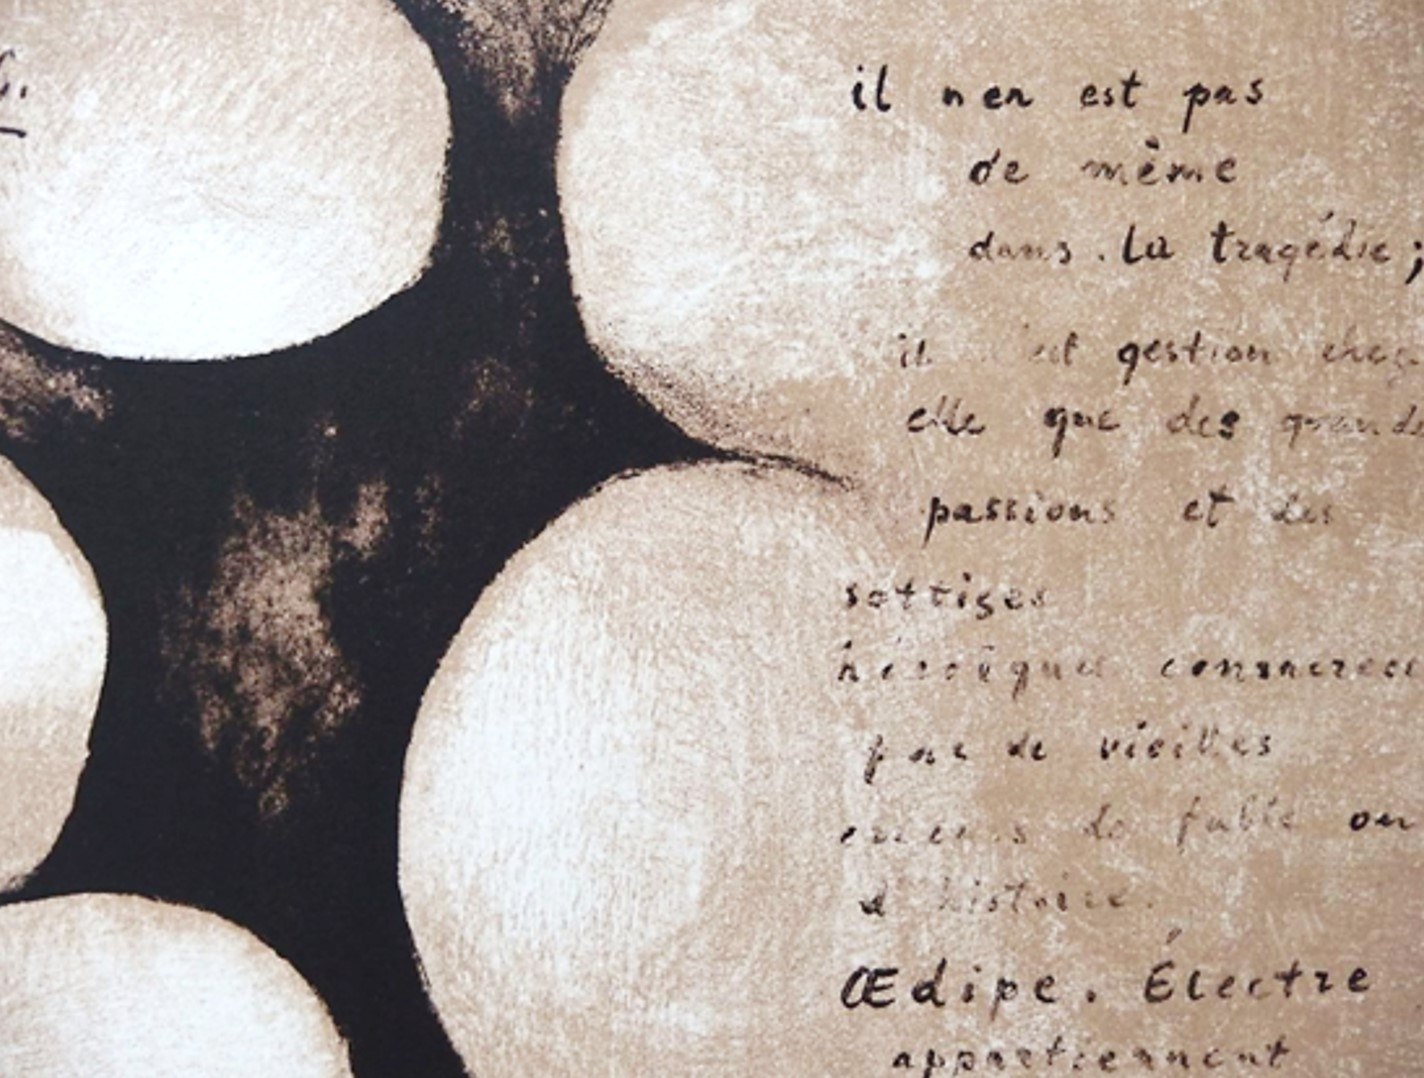 il n en est pas
de même
dans . la tragédie ;
il est question chez
elle que des grandes
passions et des
sottises
héroïques consacrées
par de vieilles
erreurs de fable ou
d histoire.
Œdipe. Électre
appartiennent